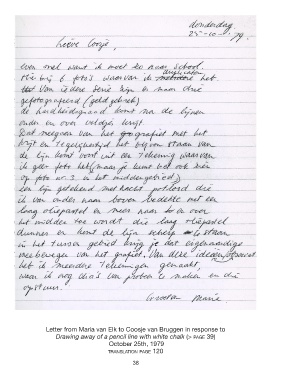 donderdag
25-10-79.
Lieve Coosje,
even snel want ik moet zo naar school.
Hierbij 6 foto's waarvan ik duplicaten
heb. Van iedere serie zijn er maar drie
gefotografeerd (geldgebrek)
de hardheidsgraad komt na de lijnen
onder en over veldje krijt
het krijt en tegelijkertijd het blijven staan van
de lijn komt voort uit een tekening waarvan
ik geen foto heb (maar je kunt het ook zien
op foto nr. 3 in het middengebied)
een lijn getekend met hard potlood die
ik van onder naar boven bedekte met een
laag oliepastel en meer naar boven over
het midden toe wordt die laag oliepastel
dunner en komt de lijn scherp te staan
in het tussen gebied krijg je dat eigenaardige
meebewegen van het grafiet. Van deze
heb ik meerdere tekeningen gemaakt,
waar ik nog dia's van probeer te maken en die
opstuur.
Groeten Maria.
Letter from Maria van Elk to Coosje van Bruggen in response to
Drawing away of a pencil line with white chalk (> PAGE 39)
October 25th, 1979
TRANSLATION PAGE 120
38